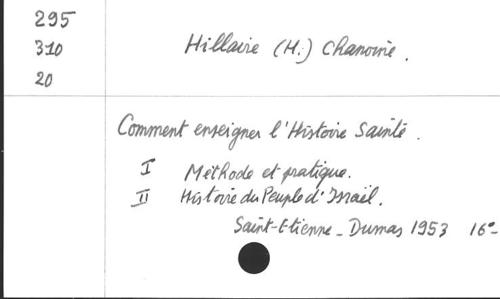 295
310
20
Hillaire (H.) Chanoine.
Comment enseigner l'Histoire Sainte.
I Méthode et pratique.
II Histoire du Peuple d'Israël.
Saint-Etienne - Dumas 1953 16°-